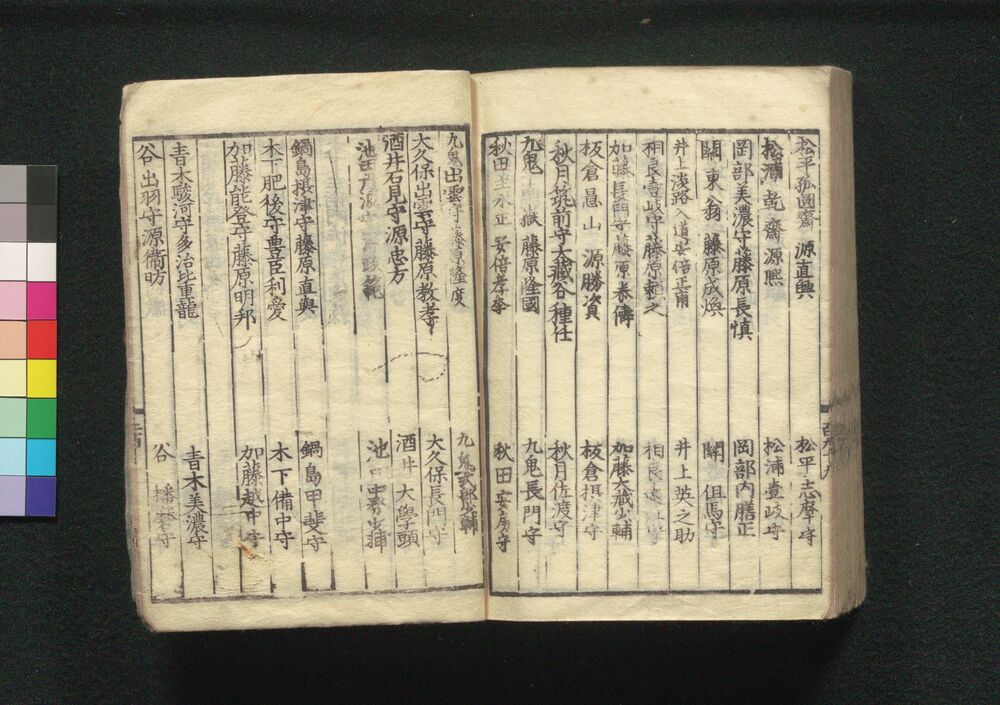 松平孤圓齋 源直興 松平志摩守
松浦乾齋源熈 松浦壹岐守
岡部美濃守藤原長慎 岡部内膳正
關東翁 藤原成煥 關但馬守
井上淡路入道安倍正甫 井上英之助
相良壹岐守藤原 之 相良
加藤長門守藤原泰儔 加藤大藏少輔
板倉昌山 源勝資 板倉摂津守
秋月筑前守大藏谷種任 秋月佐渡守
九鬼 嶽 藤原隆國 九鬼長門守
秋田 正 安倍孝季 秋田安房守
九鬼出雲守藤原隆度 九鬼式部少輔
大久保出雲守藤原教孝 大久保長門守
酒井石見守源忠方 酒井大學頭
池田 源政範 池田 少輔
鍋島摂津守藤原直與 鍋島甲斐守
木下肥後守豊臣利愛 木下備中守
加藤能登守藤原明邦 加藤越中守
青木駿河守多治比重龍 青木美濃守
谷出羽守源衛昉 谷播磨守